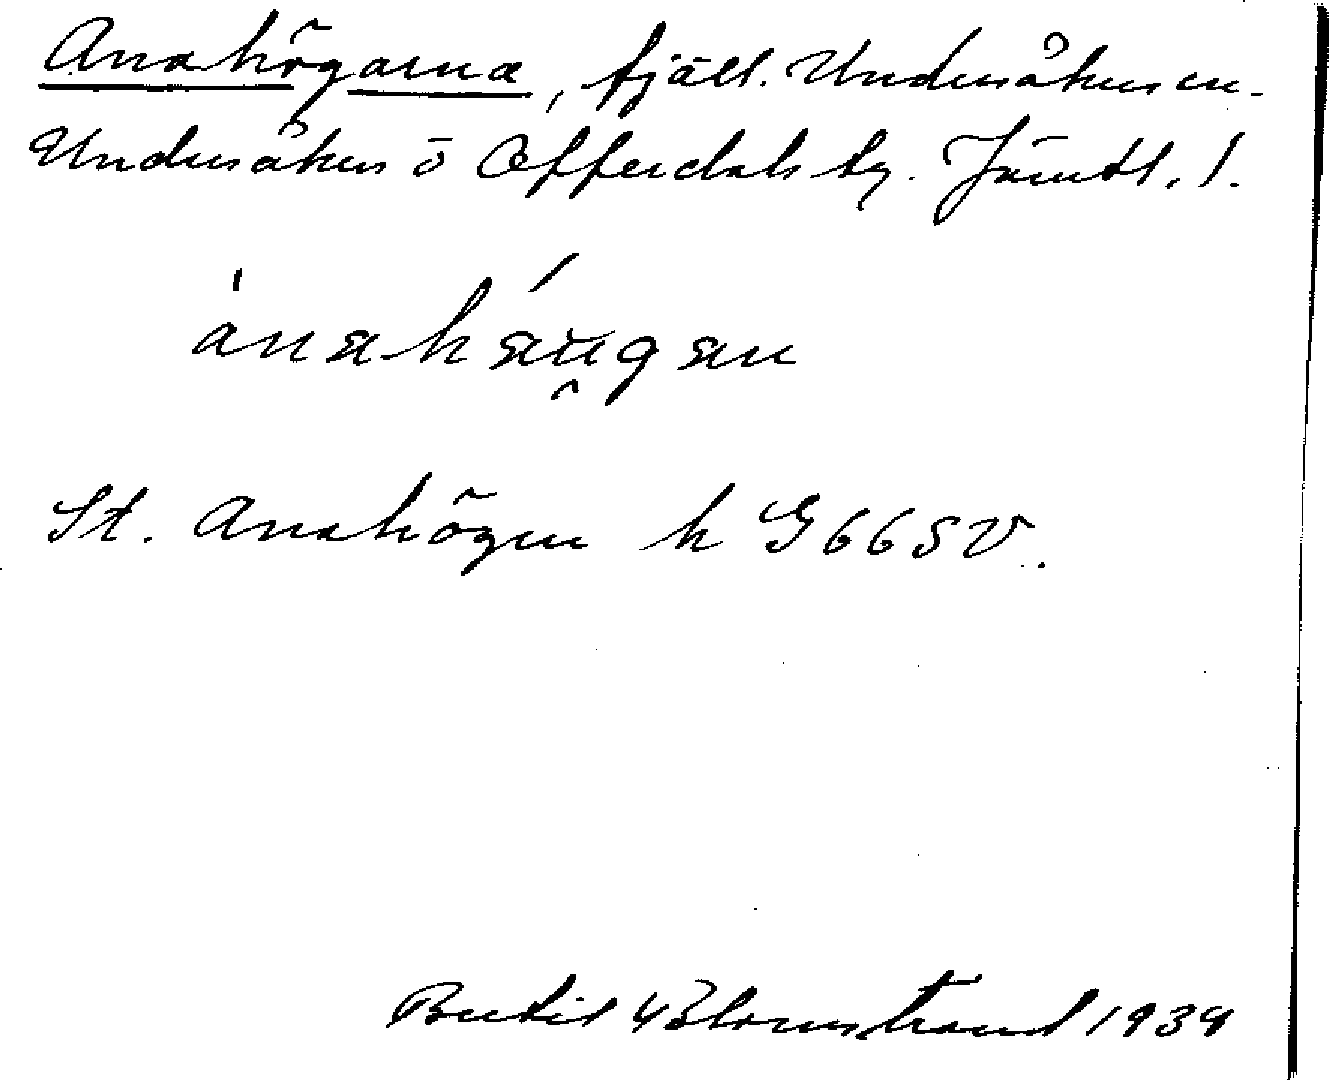 Anahögarna, fjäll. Undersåkers sn.
Undersåkers o Offerdals tg. Jämtl. l.
ànaháu̯gan
St. Anahögen k G66SV.
Bertil Blomstrand 1939